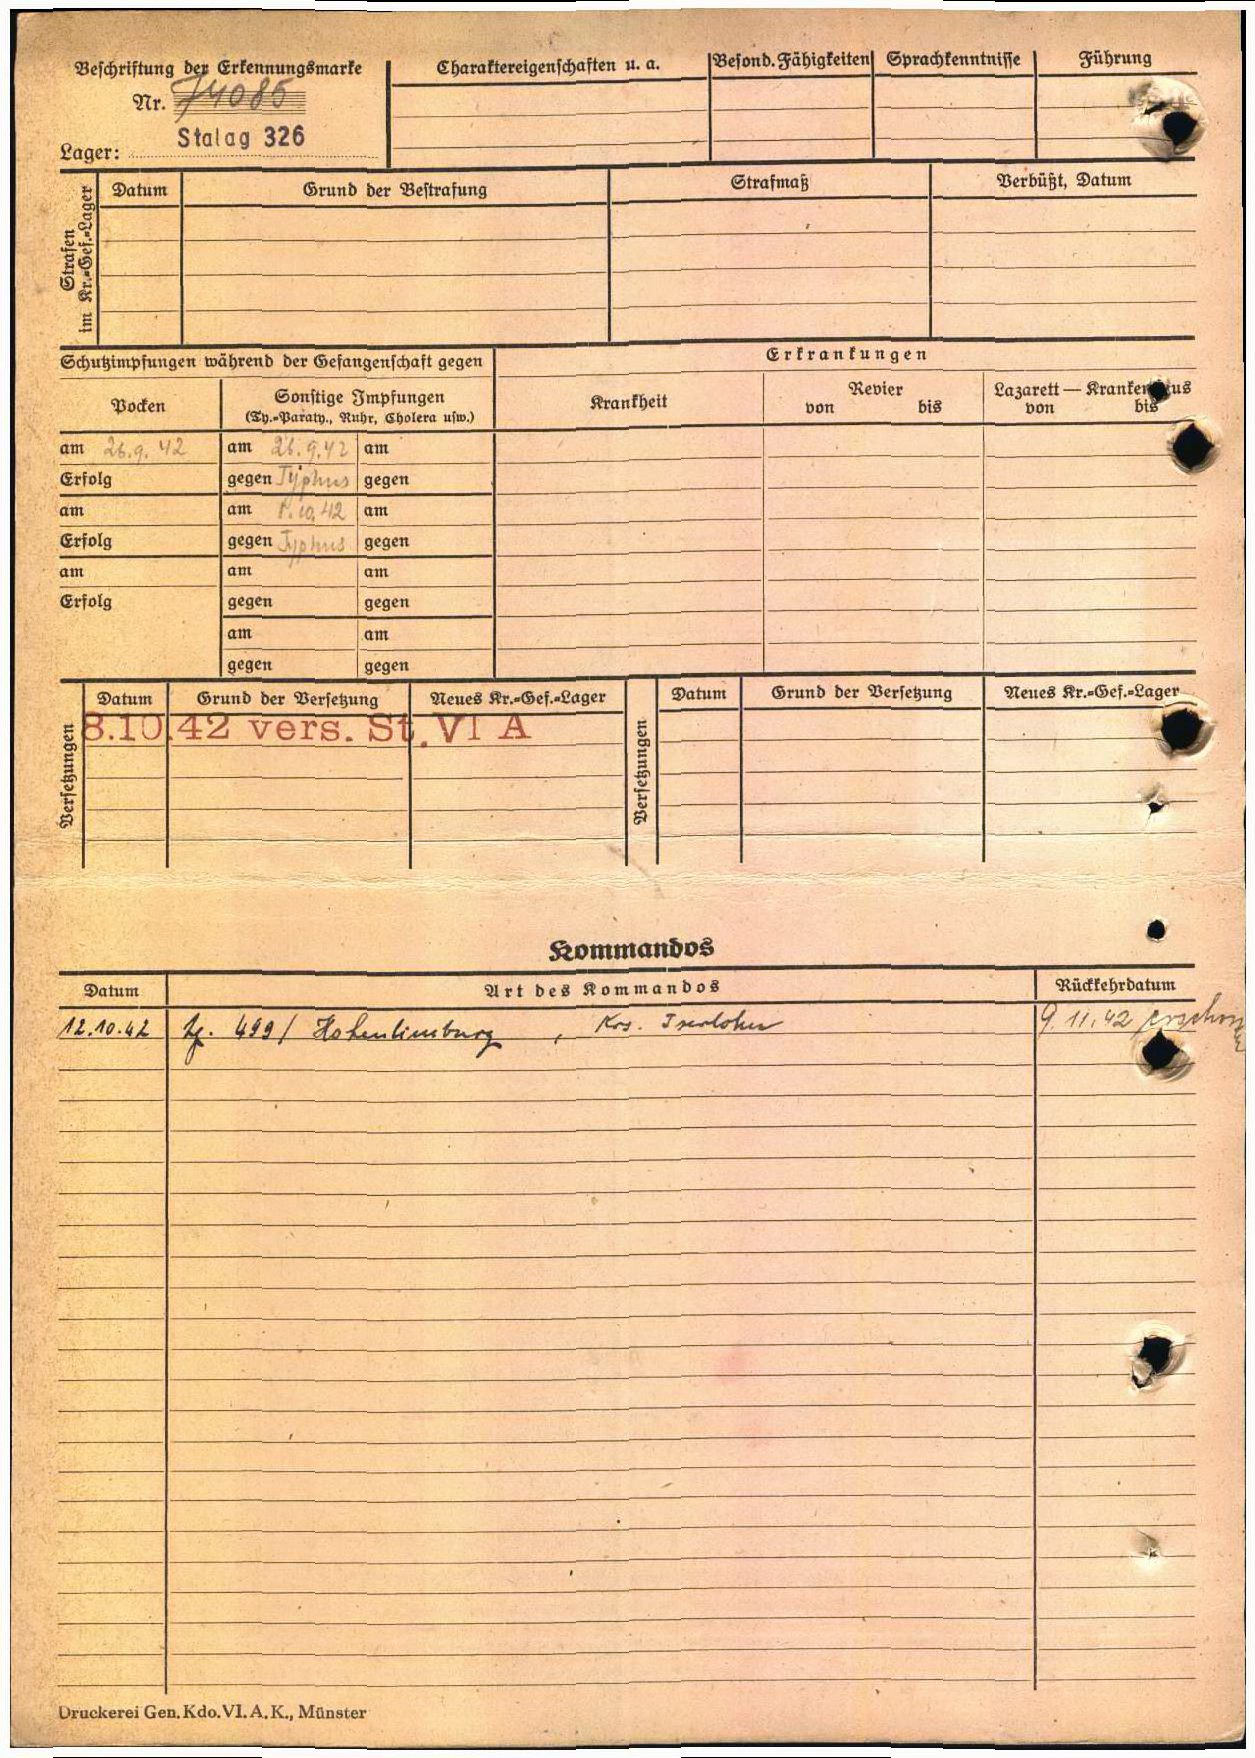 Beschriftung der Erkennungsmarke
Nr. 74085
Lager: Stalag 326
Charaktereigenschaften u. a.
Besond. Fähigkeiten
Sprachkenntnisse
Führung
Strafen im Kr.-Gef.-Lager
Datum
Grund der Bestrafung
Strafmaß
Verbüßt, Datum
Schutzimpfungen während der Gefangenschaft gegen
Erkrankungen
Pocken
Sonstige Impfungen
(Ty.-Paraty., Ruhr, Cholera usw.)
Krankheit
Revier
von bis
Lazarett — Krankenhaus
von bis
am 26.9.42 am 26.9.42 am
Erfolg gegen Typhus gegen
am am 8.10.42 am
Erfolg gegen Typhus gegen
am am am
Erfolg gegen gegen
am am
gegen gegen
Versetzungen
Datum Grund der Versetzung Neues Kr.-Gef.-Lager
8.10.42 vers. St. VI A
Versetzungen
Datum Grund der Versetzung Neues Kr.-Gef.-Lager
Kommandos
Datum Art des Kommandos Rückkehrdatum
12.10.42 499/ Hohenlimburg, Krs. Iserlohn 9.11.42
Druckerei Gen. Kdo. VI. A. K., Münster